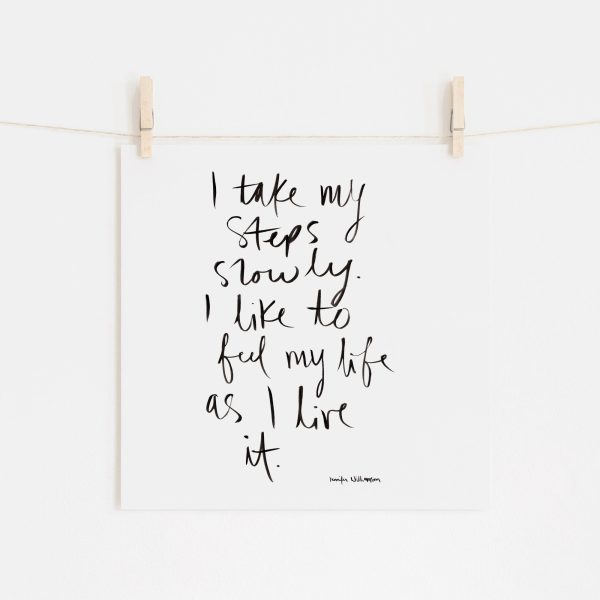 I take my
steps
slowly.
I like to
feel my life
as I live
it.
Jennifer Williamson